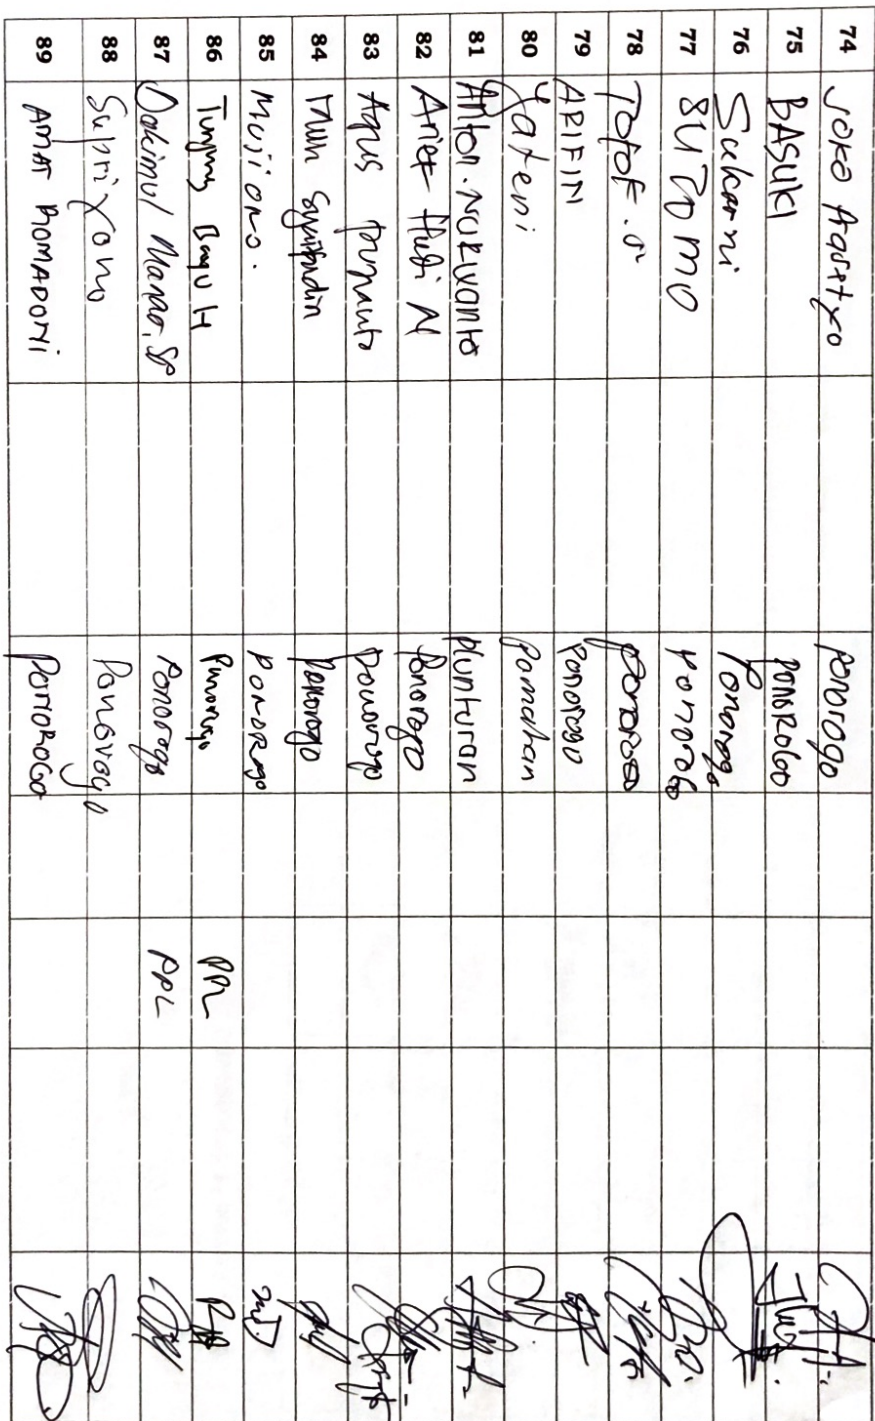 74 Joko Agustyo Ponorogo
75 BASUKI PONOROGO
76 Sukarni Ponorogo
77 SUTOMO PONOROGO
78 Totok.S Ponorogo
79 ARIFIN PONOROGO
80 Yateni Pomahan
81 Anton.NURWANTO Plunturan
82 Arief Hudi N Ponorogo
83 Agus Ponorogo
84 Muh Syaifudin Ponorogo
85 Mujiono. PONOROGO
86 Bayu H Ponorogo PPL
87 Ponorogo PPL
88 Supriyono Ponorogo
89 AMAT ROMADONI PONOROGO